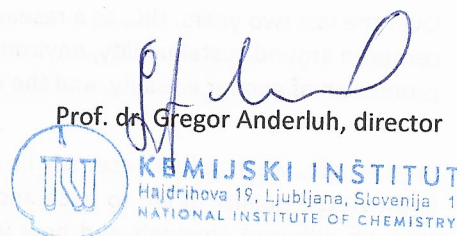 Prof. dr. Gregor Anderluh, director
KEMIJSKI INŠTITUT
Hajdrihova 19, Ljubljana, Slovenija 1
NATIONAL INSTITUTE OF CHEMISTRY